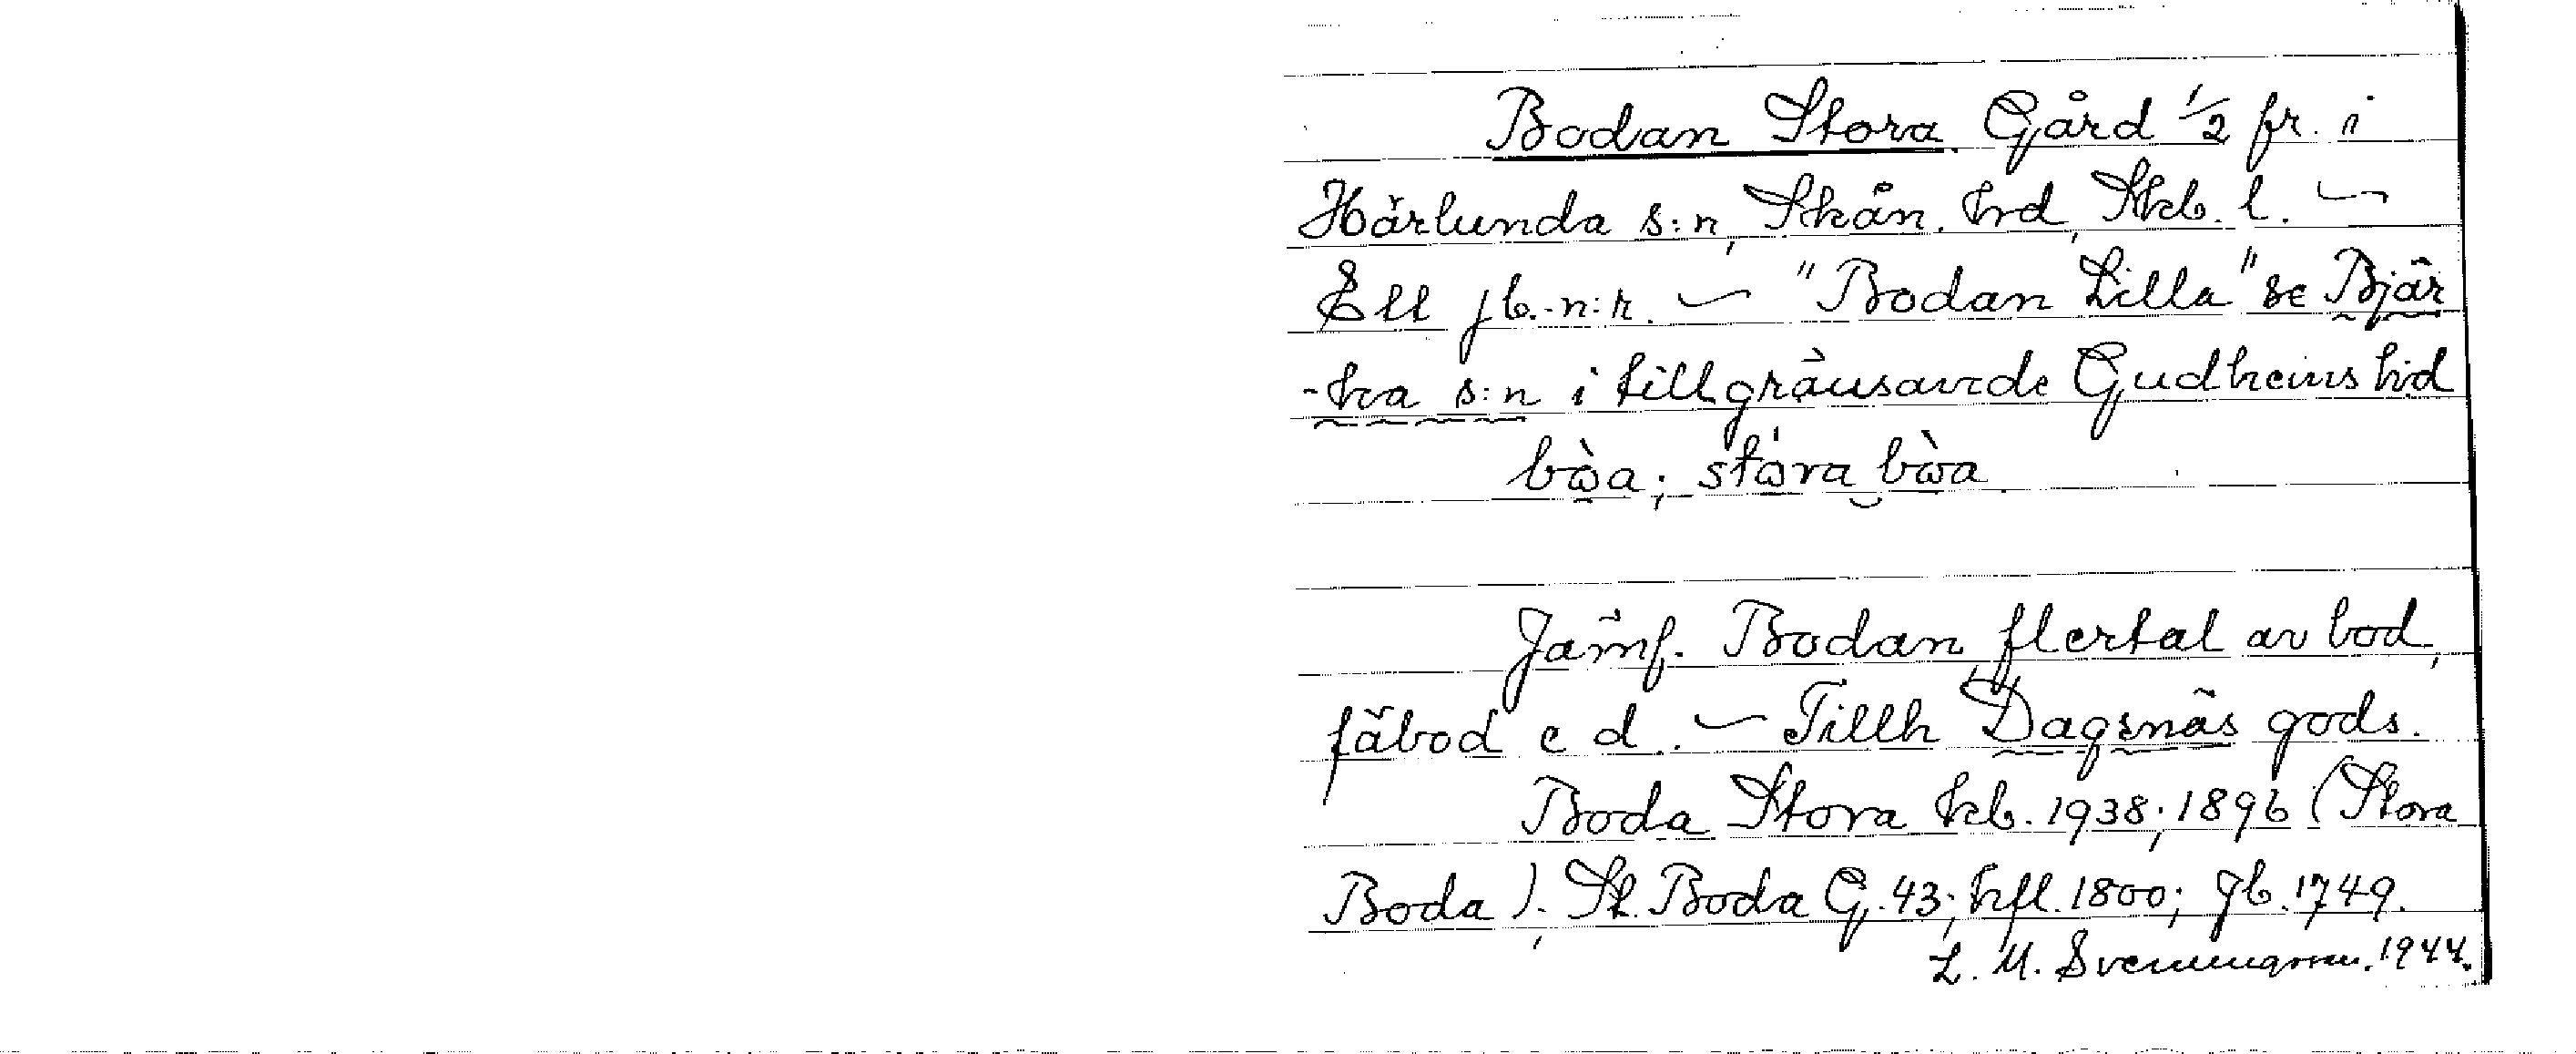 Bodan Stora. Gård 1/2 fr. i
Härlunda s:n, Skån. hrd, Skb. l. —
Ett jb.-n:r. — "Bodan Lilla" se Bjär
-ka s:n i tillgränsande Gudhems hrd
bòa; stóra bòa
Jämf. Bodan, flertal av bod,
fäbod e d. — Tillh Dagsnäs gods.
Boda Stora kb. 1938; 1896 (Stora
Boda); St. Boda G. 43; hfl. 1800; jb. 1749.
L. M. Svenungsson. 1944.